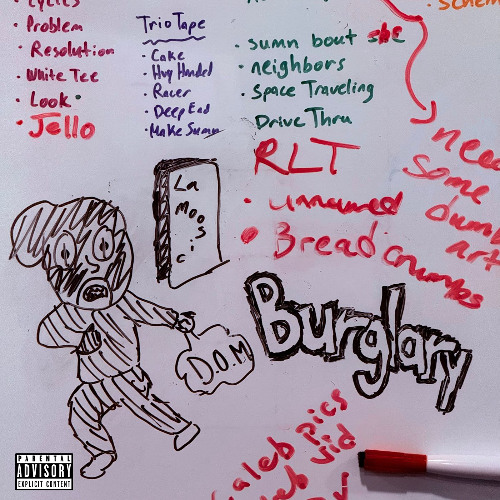 Lyrics
• Problem
• Resolution
• White Tee
• Look
• Jello
Trio Tape
• Cake
• Racer
• Deep End
• Make Sumn
• sumn bout she
• neighbors
• Space Traveling
Drive Thru
RLT
• unnamed
• Bread Crumbs
need
some
dumb
art
La
Moos
ic
D.O.M
Burglary
caleb pics
PARENTAL
ADVISORY
EXPLICIT CONTENT